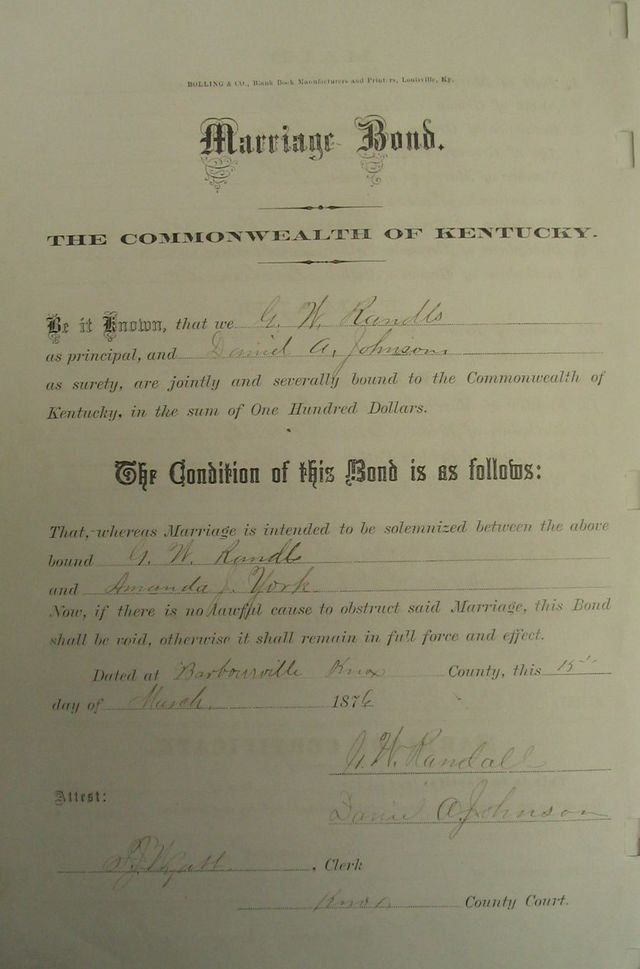 BOLLING & CO., Blank Book Manufacturers and Printers, Louisville, Ky.
Marriage Bond.
THE COMMONWEALTH OF KENTUCKY.
Be it Known, that we G. W. Randls
as principal, and Daniel A. Johnson
as surety, are jointly and severally bound to the Commonwealth of
Kentucky, in the sum of One Hundred Dollars.
The Condition of this Bond is as follows:
That, whereas Marriage is intended to be solemnized between the above
bound G. W. Randls
and Amanda J. York
Now, if there is no lawful cause to obstruct said Marriage, this Bond
shall be void, otherwise it shall remain in full force and effect.
Dated at Barbourville Knox County, this 15th
day of March 1876
G. W. Randall
Daniel A. Johnson
Attest:
, Clerk
Knox County Court.